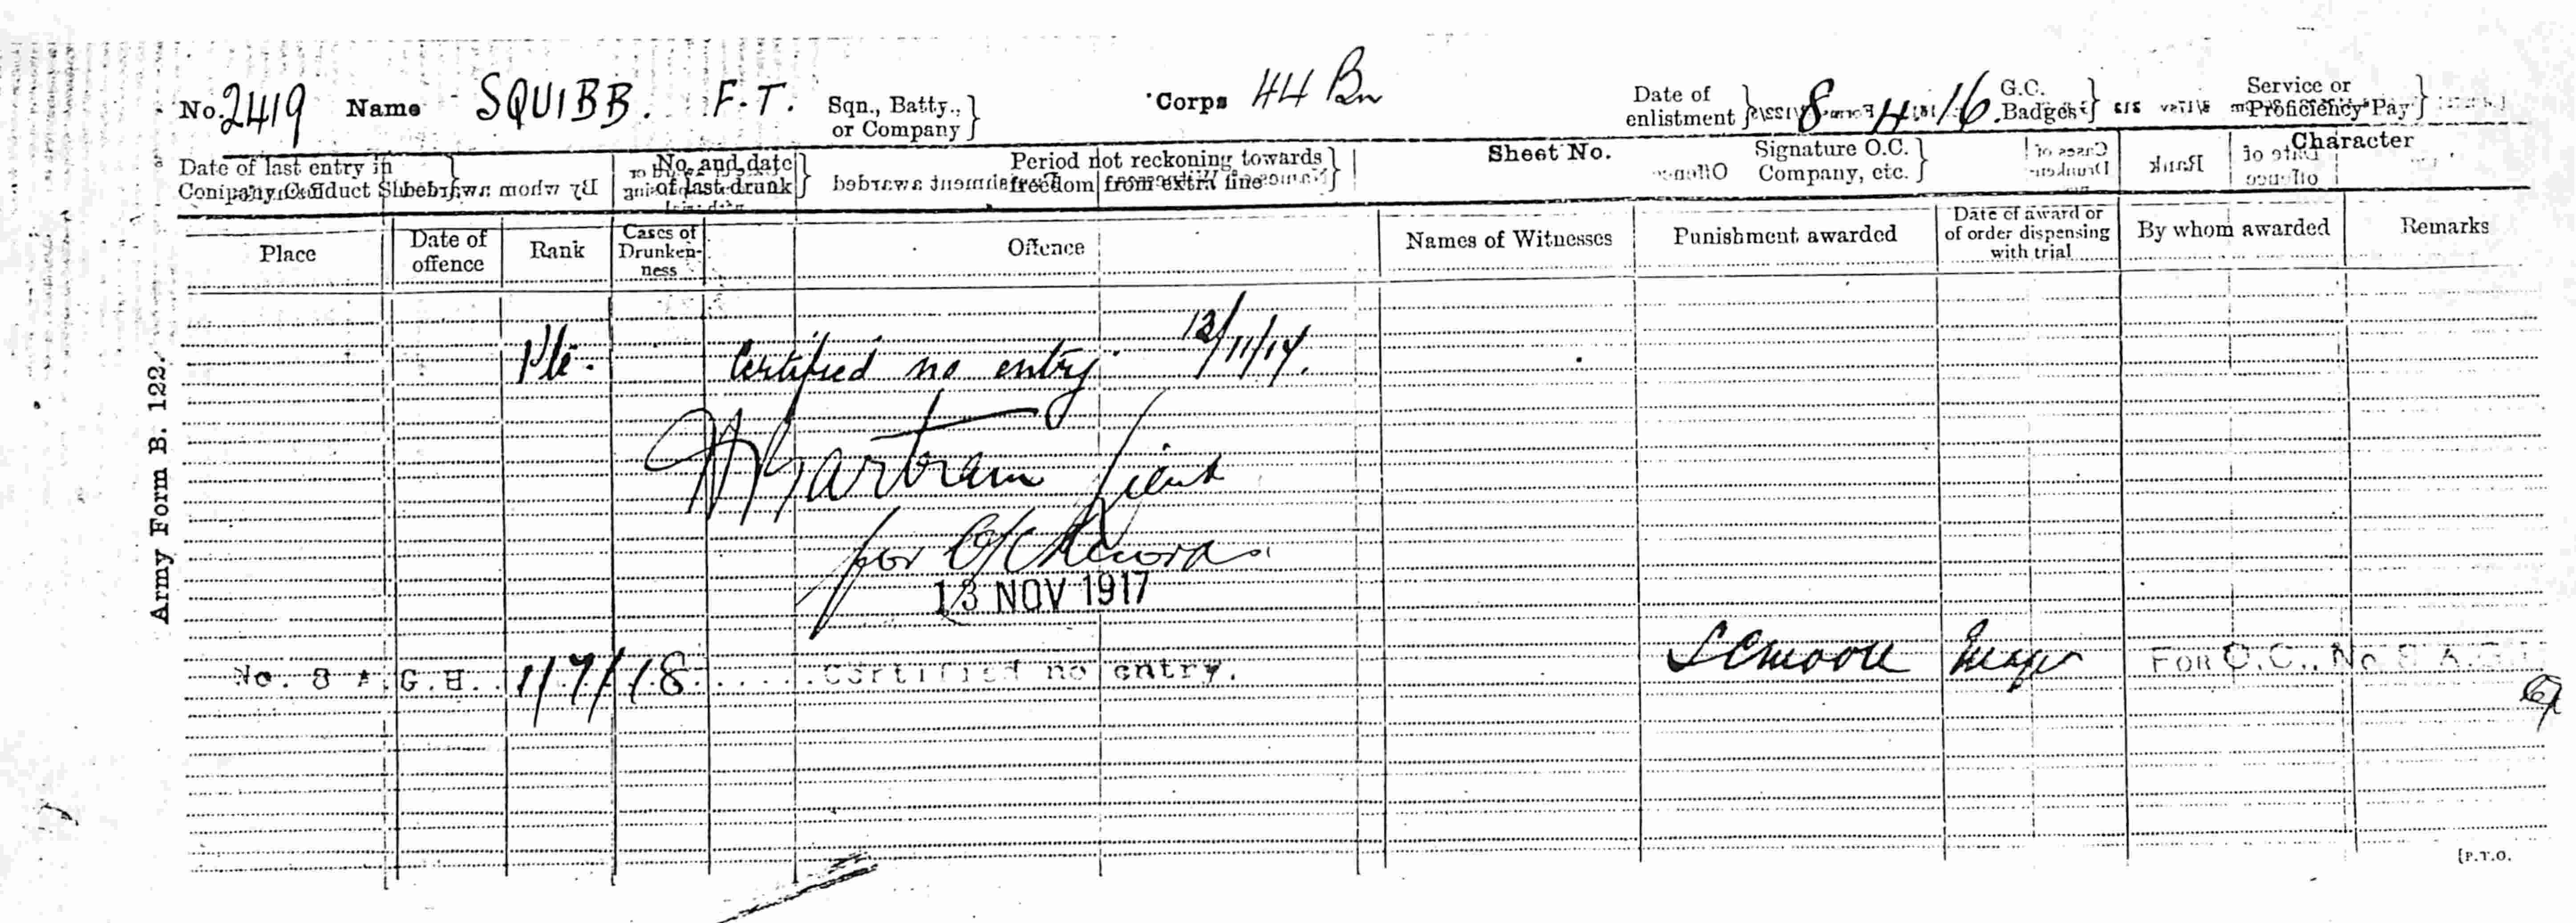 No. 2419 Name SQUIBB. F.T. Sqn., Batty., or Company Corps 44 Bn Date of enlistment 8 4 16 G.C. Badges Service or Proficiency Pay
Date of last entry in Company Conduct Sheet No. and date of last drunk Period not reckoning towards freedom from extra fine Sheet No. Signature O.C. Company, etc. Character
Place Date of offence Rank Cases of Drunkenness Offence Names of Witnesses Punishment awarded Date of award or of order dispensing with trial By whom awarded Remarks
Pte. Certified no entry 13/11/17.
Lieut
for O/C Records
13 NOV 1917
No. 8 A.G.H. 1/7/18 Certified no entry. Major FOR O.C., No 8 A.G.H.
Army Form B. 122.
[P.T.O.